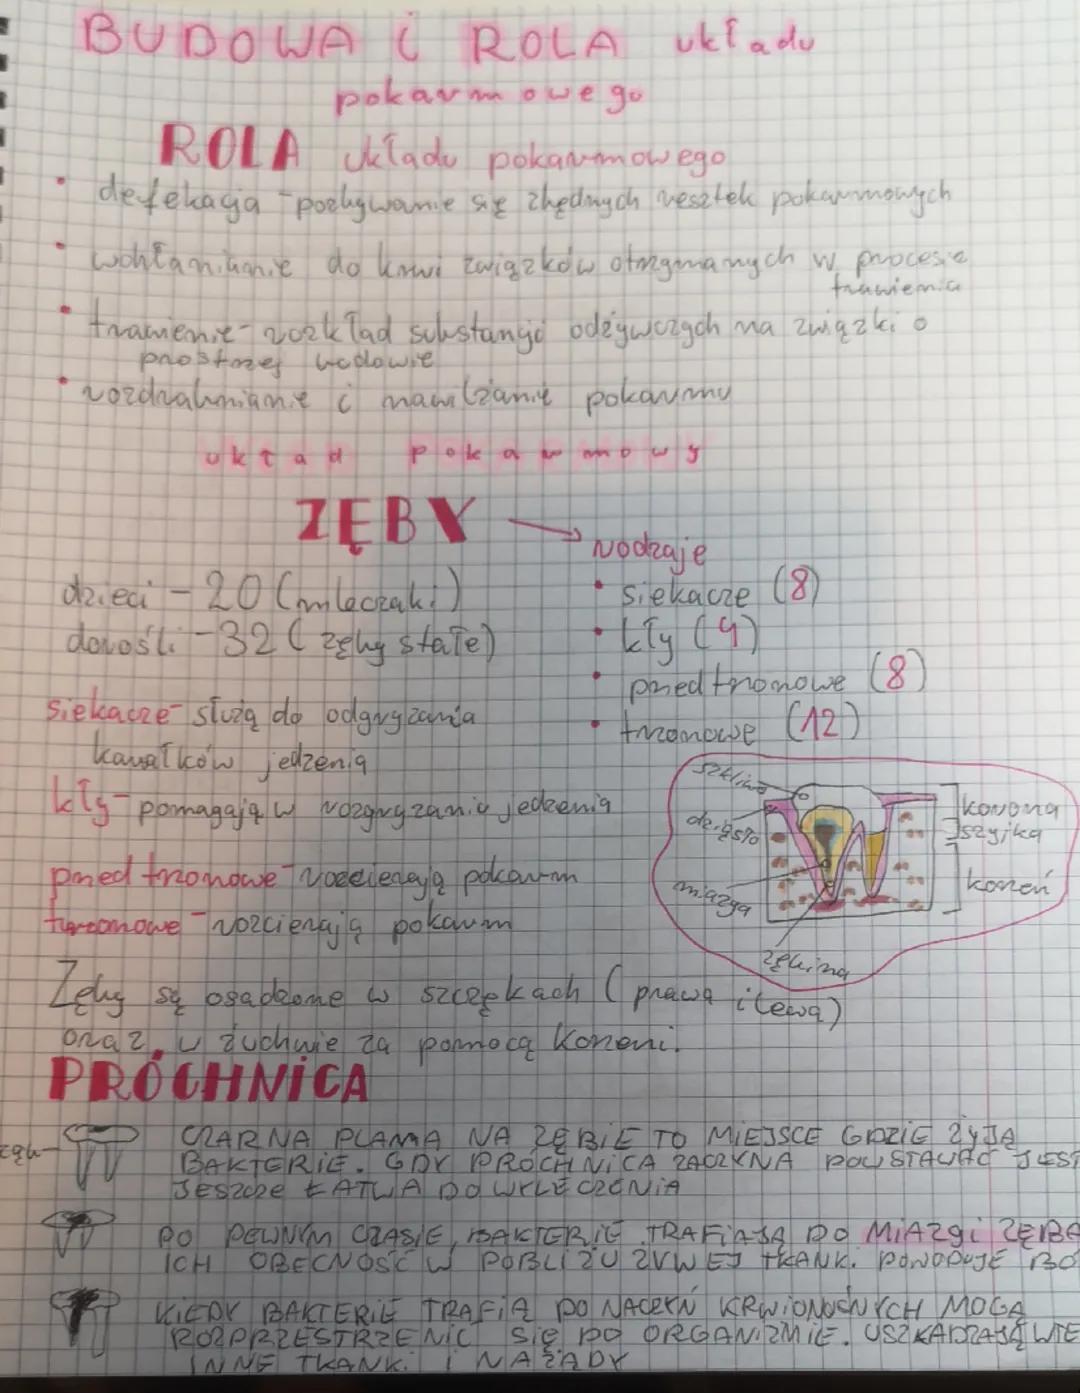 BUDOWA i ROLA układu
pokarmowego
ROLA układu pokarmowego
• defekacja - pozbywanie się zbędnych resztek pokarmowych
• wchłanianie do krwi związków otrzymanych w procesie
trawienia
• trawienie - rozkład substancji odżywczych na związki o
prostszej budowie
• rozdrabnianie i nawilżanie pokarmu
układ pokarmowy
ZĘBY → rodzaje
dzieci - 20 (mleczaki)
• siekacze (8)
dorośli - 32 (zęby stałe)
• kły (4)
• przedtrzonowe (8)
siekacze - służą do odgryzania
• trzonowe (12)
kawałków jedzenia
kły - pomagają w rozgryzaniu jedzenia
szkliwo
dziąsło
miazga
zębina
korona
szyjka
korzeń
przed trzonowe - rozcierają pokarm
trzonowe - rozcierają pokarm
Zęby są osadzone w szczękach (prawą i lewą)
oraz w żuchwie za pomocą korzeni.
PRÓCHNiCA
ząb
CZARNA PLAMA NA ZĘBIE TO MIEJSCE GDZIE ŻYJĄ
BAKTERIE. GDY PRÓCHNICA ZACZYNA POWSTAWAĆ JEST
JESZCZE ŁATWA DO WYLECZENIA
PO PEWNYM CZASIE, BAKTERIE TRAFIAJĄ DO MIAZGI ZĘBA
ICH OBECNOŚĆ W POBLIŻU ŻYWEJ TKANKI POWODUJE BÓ
KIEDY BAKTERIE TRAFIĄ DO NACZYŃ KRWIONOŚNYCH MOGĄ
ROZPRZESTRZENIĆ SIĘ PO ORGANIZMIE. USZKADZAJĄ WTE
INNE TKANKI I NARZĄDY